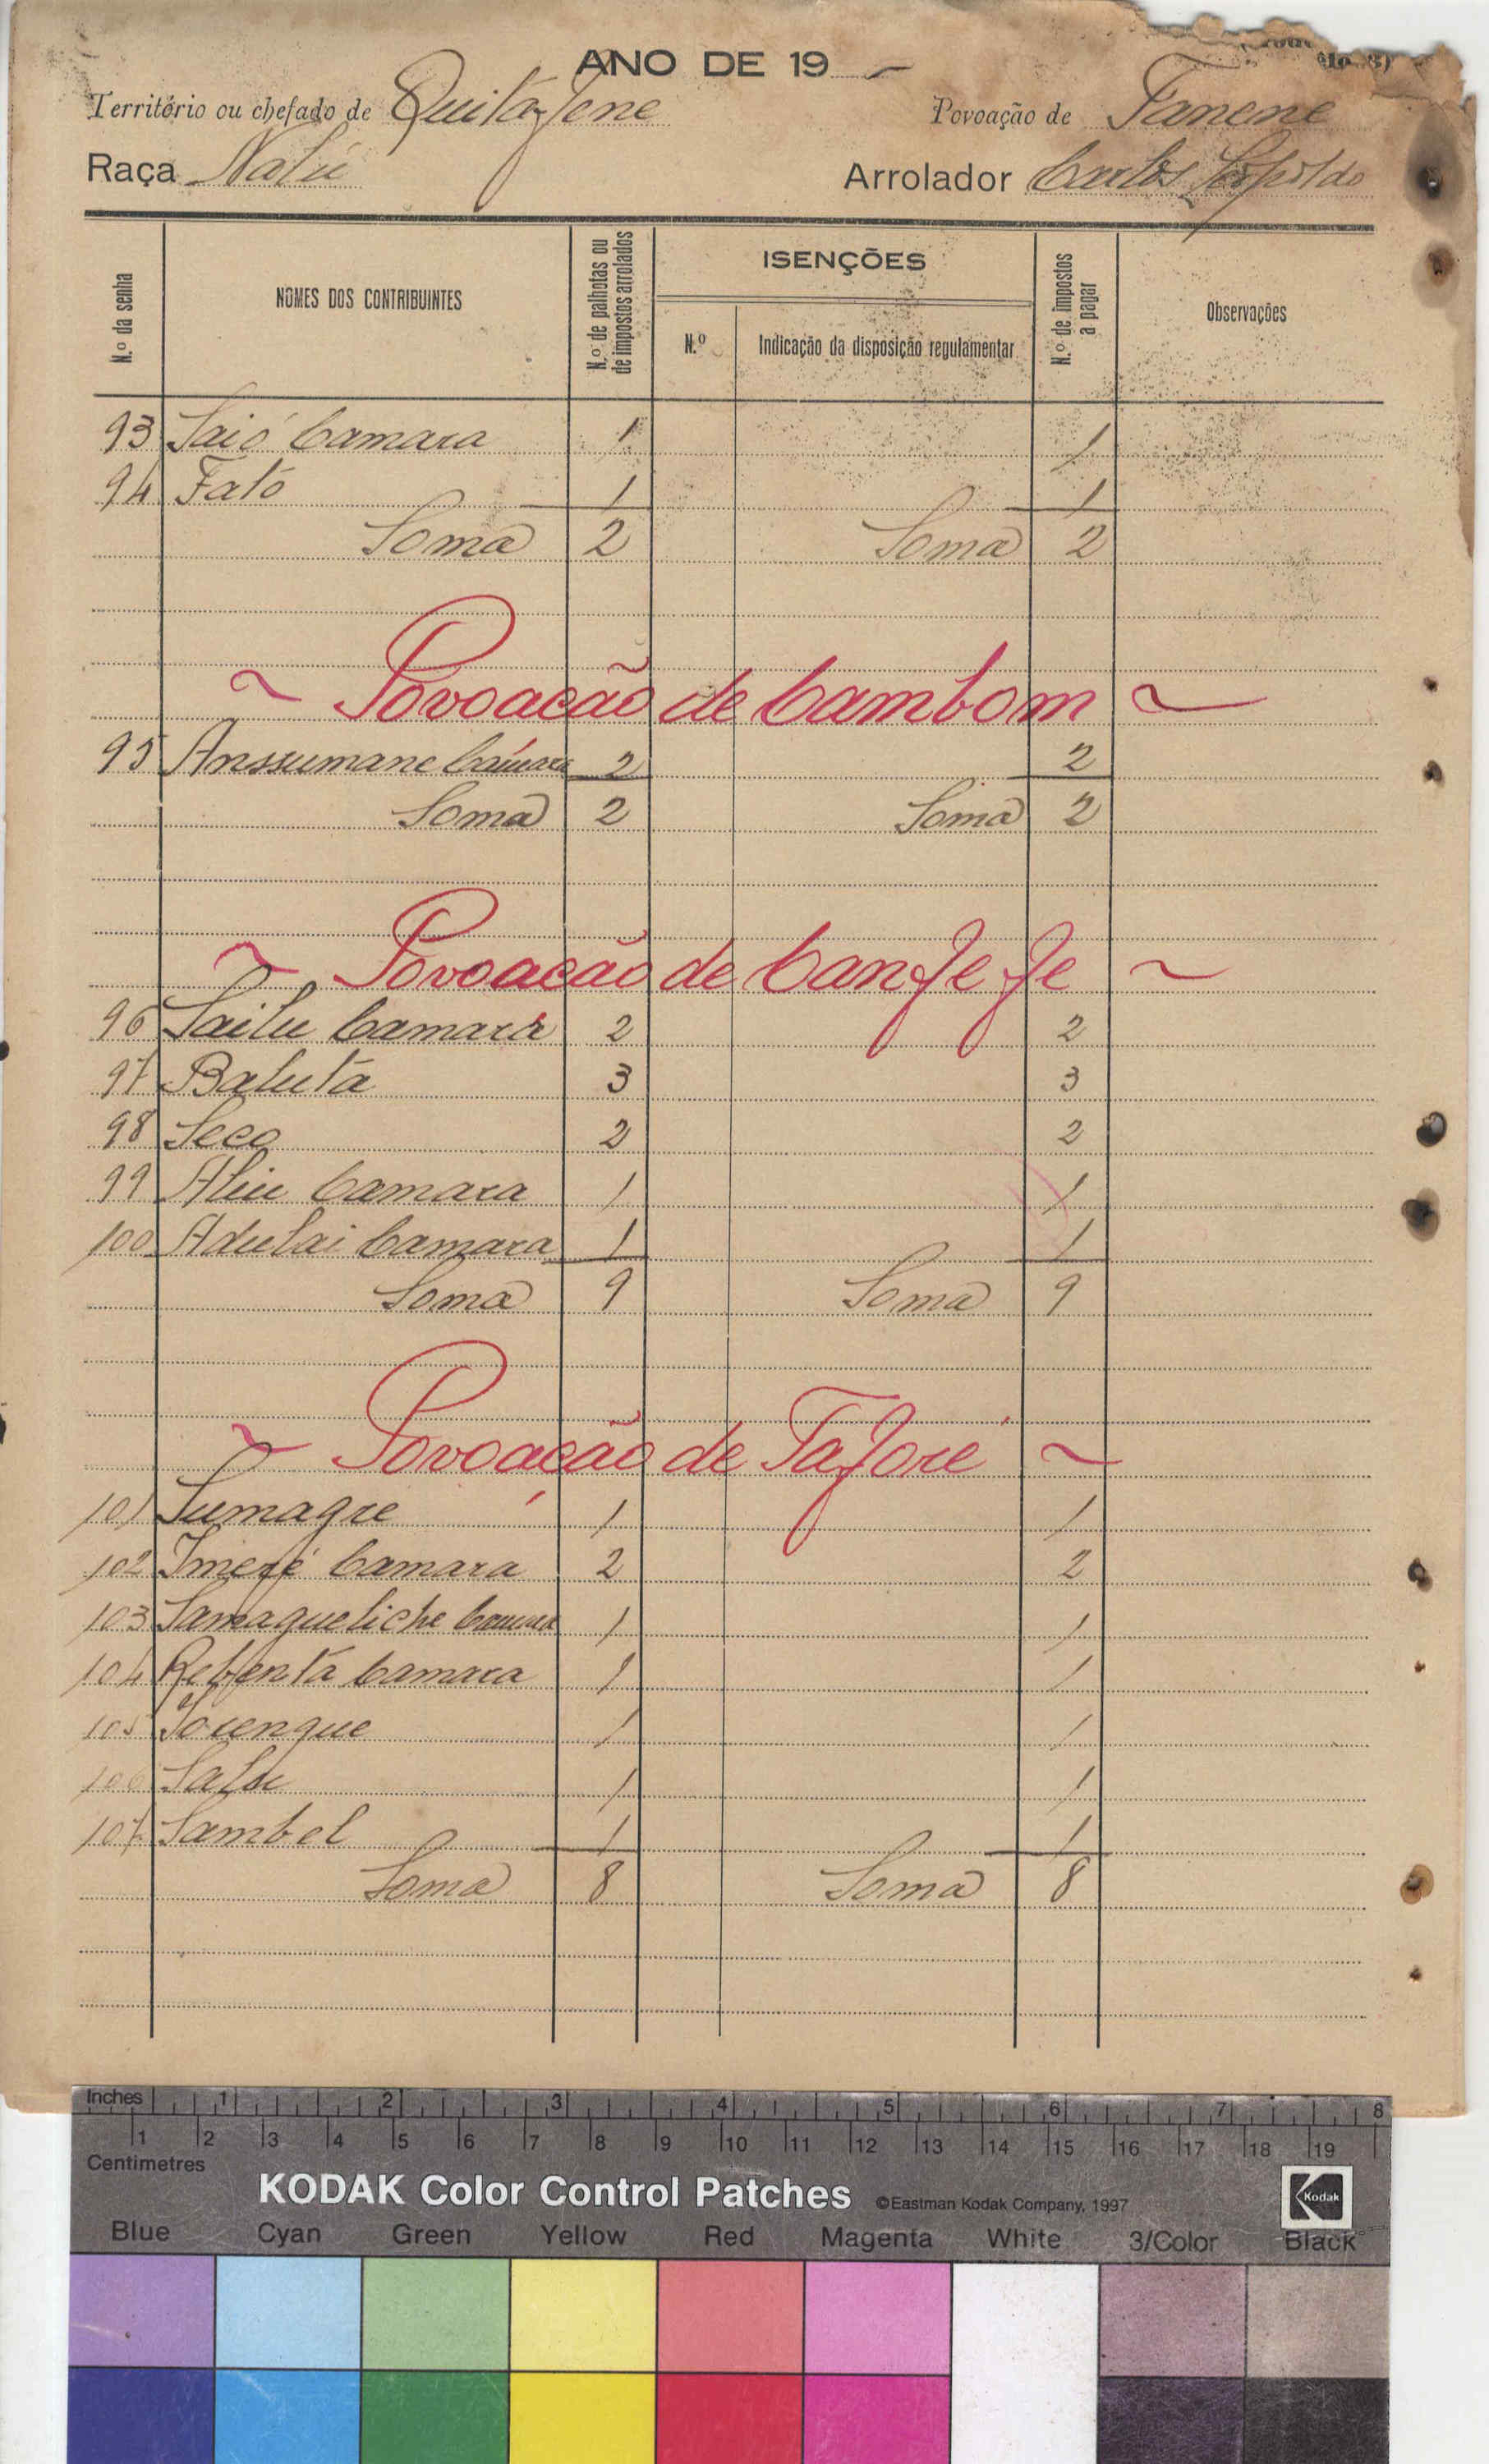 ANO DE 19 -
Território ou chefado de Quitafene Povoação de Tanene
Raça Nalú Arrolador Carlos Leopoldo
N.º da senha
NOMES DOS CONTRIBUINTES
N.º de palhotas ou de impostos arrolados
ISENÇÕES
N.º
Indicação da disposição regulamentar
N.º de impostos a pagar
Observações
93 Saió Camara 1 1
94 Fató 1 1
Soma 2 Soma 2
~ Povoacão de Cambom ~
95 Anssumane Cámara 2 2
Soma 2 Soma 2
~ Povoacão de Canfefe ~
96 Sailu Camara 2 2
97 Baluta 3 3
98 Seco 2 2
99 Aliu Camara 1 1
100 Adulai Camara 1 1
Soma 9 Soma 9
~ Povoacão de Tafore ~
101 Sumagre 1 1
102 Camara 2 2
103 Camara 1 1
104 Camara 1 1
105 1 1
106 1 1
107 Sambel 1 1
Soma 8 Soma 8
Inches 1 2 3 4 5 6 7 8
1 2 3 4 5 6 7 8 9 10 11 12 13 14 15 16 17 18 19
Centimetres
KODAK Color Control Patches ©Eastman Kodak Company, 1997 Kodak
Blue Cyan Green Yellow Red Magenta White 3/Color Black